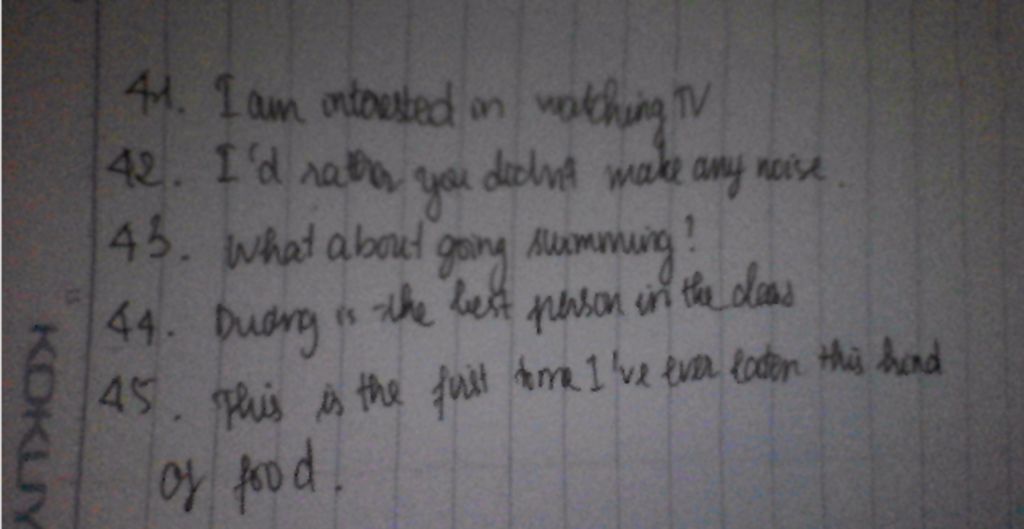 41. I am interested in watching TV
42. I'd rather you didn't make any noise.
43. What about going swimming?
44. Duong is the best person in the class
45. This is the first time I've ever eaten this kind
of food.
KOKUY